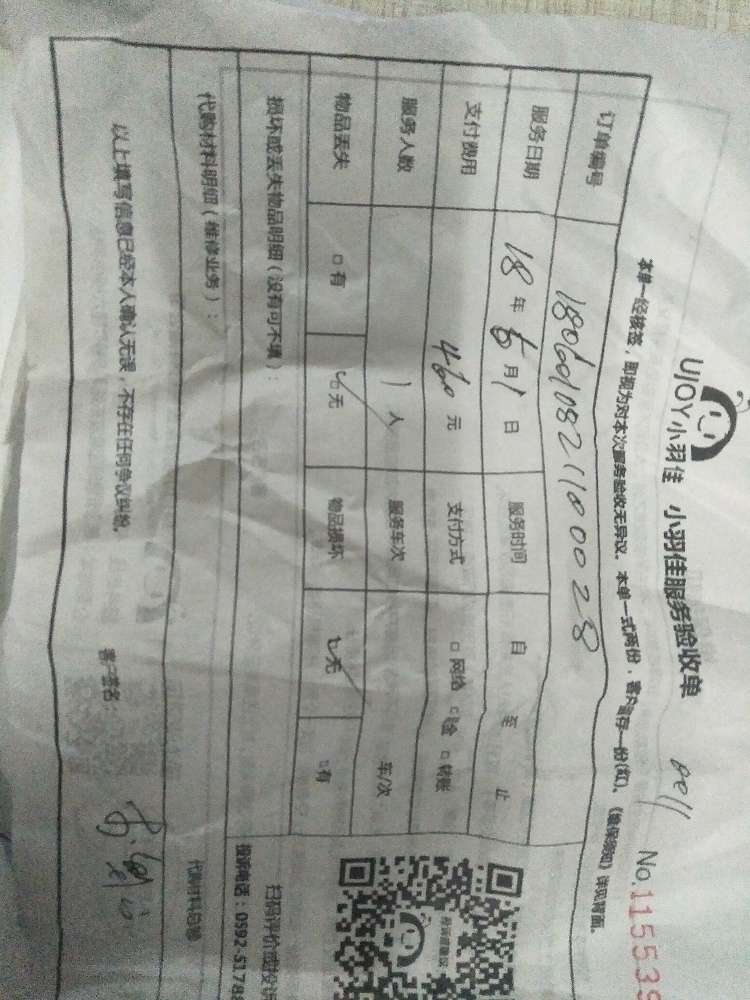 UJOY小羽佳 小羽佳服务验收单
No.115539
本单一经接签，即视为对本次服务验收无异议。本单一式两份，客户留存一份(红)。《售保须知》详见背面。
订单编号
服务日期 18年6月1日 服务时间 自 至 止
支付费用 460元 支付方式 □网络 □现金 □转账
服务人数 1人 服务车次 车/次
物品丢失 □有 □无 物品损坏 □无 □有
损坏或丢失物品明细（没有可不填）：
扫码评价或投诉
投诉电话：0592-5178
代购材料明细（维修业务）：
代购材料总额
以上填写信息已经本人确认无误，不存在任何争议纠纷。
客户签名：